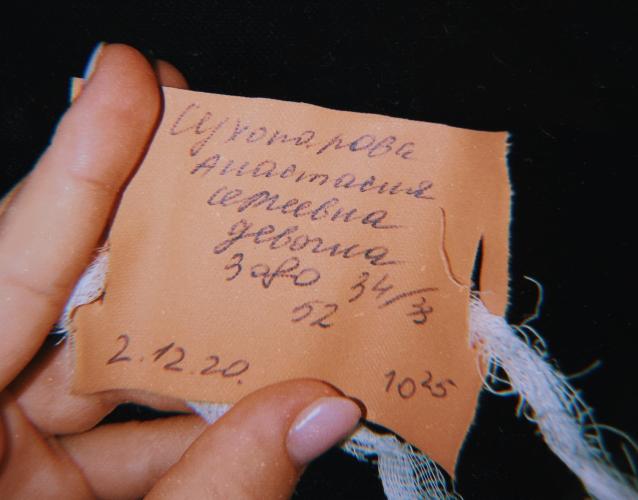 Сухопарова
Анастасия
Сергеевна
девочка
3280 34/33
52
2.12.20. 10 25